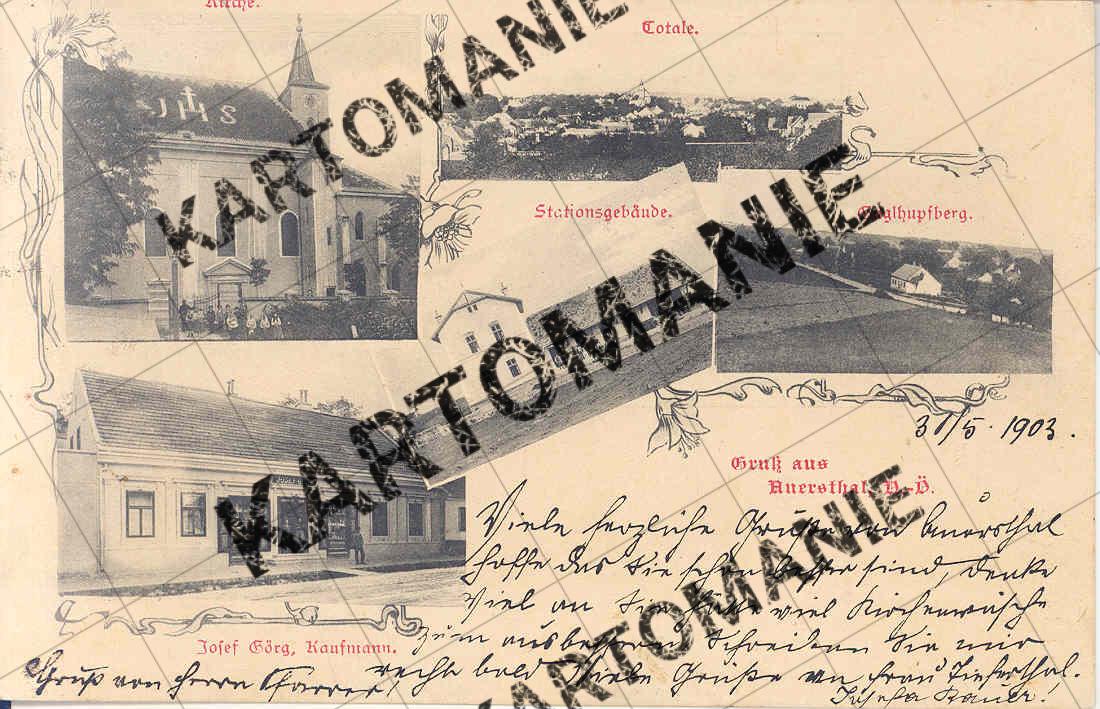 Kirche.
Totale.
JHS
Stationsgebäude.
Guglhupfberg.
31/5. 1903.
Gruß aus
Auersthal, N.-Ö.
JOSEF
Viele herzliche Grüße von Auersthal
hoffe das Sie schon besser sind, denke
viel an Sie habe viel Kirchenwäsche
zum ausbessern Schreiben Sie mir
recht bald Viele Grüße an Frau Tieferthal.
Josef Görg, Kaufmann.
Gruß von Herrn Pfarrer,
Josefa
KARTOMANIE
KARTOMANIE
KARTOMANIE
KARTOMANIE
KARTOMANIE